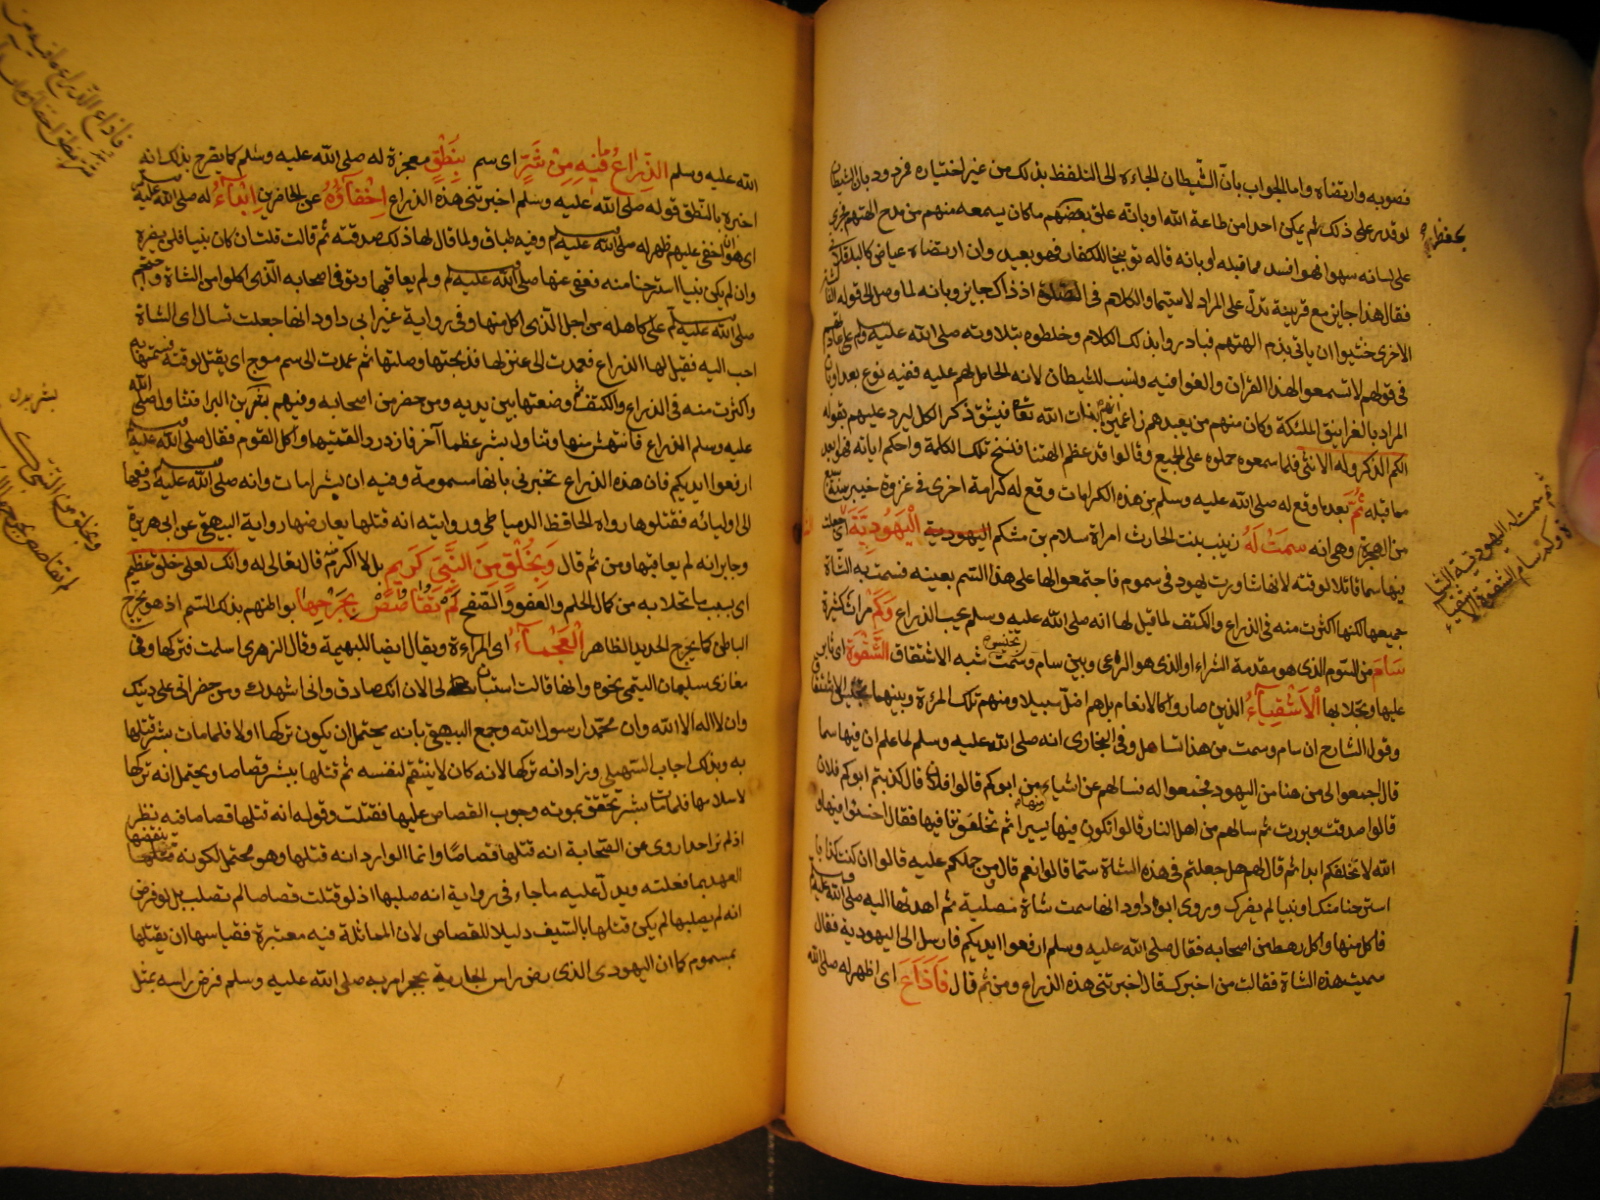 فصوبه وارتضاه واما الجواب بان الشيطان الجاءه الى التلفظ بذلك من غير اختياره فمردود بان الشيطان
لو قدر على ذلك لم يمكن احدا من طاعة الله او بانه علق بعضهم ما كان يسمعه منهم من مدح الهتهم فجرى
على لسانه سهوا فهو افسد مما قبله او بانه قاله توبيخا للكفار فهو بعيد وان ارتضاه عياض كالباقلانى
فقال هذا جايز مع قرينة تدل على المراد لا سيما والكلام فى الصلاة اذ ذاك جايز وبانه لما وصل الى قوله الثالثة
الاخرى خشيوا ان ياتى بذم الهتهم فبادروا بذلك الكلام وخلطوه بتلاوته صلى الله عليه وسلم على عادتهم
فى قولهم لا تسمعوا لهذا القران والغوا فيه ونسب للشيطان لانه الحامل لهم عليه ففيه نوع بعد او بان
المراد بالغرانيق الملئكة وكان منهم من يعبدهم زاعمين انهم بنات الله تعالى فنسق ذكر الكل ليرد عليهم بقوله
الكم الذكر وله الانثى فلما سمعوه حملوه على الجميع وقالوا قد عظم الهتنا فنسخ تلك الكلمة واحكم اياته فهو ابعد
مما قبله ثم بعد ما وقع له صلى الله عليه وسلم من هذه الكرامات وقع له كرامة اخرى فى غزوة خيبر سنة سبع
من الهجرة وهى انه سمت له زينب بنت الحارث امراة سلام بن مشكم اليهودية اليهودية اى جعلت
فيها سما قاتلا لوقته لانها شاورت ليهود فى سموم فاجتمعوا لها على هذا السم بعينه فسمت به الشاة
جميعها لكنها اكثرت منه فى الذراع والكتف لما قيل لها انه صلى الله عليه وسلم يحب الذراع وكم مرات كثيرة
سام من السوم الذى هو مقدمة الشراء او الذى هو الرعى وبين سام وسمت تجنيس شبه الاشتقاق الشقوة اى
عليها وتحلا بها الاشقياء الذين صاروا كالانعام بل هم اضل سبيلا ومنهم تلك المرءة وبينهما تجنيس الاشتقاق
وقول الشارح ان سام وسمت من هذا تساهل وفى البخارى انه صلى الله عليه وسلم لما علم ان فيها سما
قال اجمعوا لى من هنا من اليهود فجمعوا له فسالهم عن اشياء من ابوكم قالوا فلان قال كذبتم ابوكم فلان
قالوا صدقت وبررت ثم سالهم من اهل النار قالوا نكون فيها يسيرا ثم تخلفوننا فيها فقال اخسئوا فيها و
الله لا نخلفكم ابدا ثم قال لهم هل جعلتم فى هذه الشاة سما قالوا نعم قال من حملكم عليه قالوا ان كنت كذابا
استرحنا منك او نبيا لم يضرك وروى ابو داود انها سمت شاة مصلية ثم اهدتها اليه صلى الله عليه وسلم
فاكل منها واكل رهط من اصحابه فقال صلى الله عليه وسلم ارفعوا ايديكم فارسل الى اليهودية فقال
سميت هذه الشاة فقالت من اخبرك قال اخبرتنى هذه الذراع ومن ثم قال فاذاع اى اظهر له صلى الله
الله عليه وسلم الذراع ما فيه من شر اى سم بنطق معجزة له صلى الله عليه وسلم كما يصرح بذلك انه
اخبره بالنطق قوله صلى الله عليه وسلم اخبرتنى هذه الذراع اخفاؤه عن الحاضرين ابداء له صلى الله عليه وسلم
اى هو ان اخفى عليهم ظهر له صلى الله عليه وسلم وفيه طباق ولما قال لها ذلك صدقته ثم قالت قلت ان كان نبيا فلن يضره
وان لم يكن نبيا استرحنا منه فعفى عنها صلى الله عليه وسلم ولم يعاقبها وتوفى اصحابه الذى اكلوا من الشاة واحتجم
صلى الله عليه وسلم على كاهله من اجل الذى اكل منها وفى رواية غير ابى داود انها جعلت تسال اى الشاة
احب اليه فقيل لها الذراع فعمدت الى عنز لها فذبحتها وصلتها ثم عمدت الى سم موح اى يقتل لوقته فسمتها به
واكثرت منه فى الذراع والكتف ثم وضعتها بين يديه ومن حضر من اصحابه وفيهم بشر بن البراء فتناول صلى الله
عليه وسلم الذراع فانتهش منها وتناول بشر عظما آخر فازدرد القمتيها واكل القوم فقال صلى الله عليه وسلم
ارفعوا ايديكم فان هذه الذراع تخبرنى بانها مسمومة وفيه ان بشرا مات وانه صلى الله عليه وسلم دفعها
الى اوليائه فقتلوها رواه الحافظ الدمياطى وروايته انه قتلها يعارضها رواية البيهقى عن ابى هريرة
وجابر انه لم يعاقبها ومن ثم قال وبخلق من النبى كريم بل لا اكرم منه قال تعالى له وانك لعلى خلق عظيم
اى بسبب ما تحلا به من كمال الحلم والعفو والصفح لم تقاصص بجرحها بواطنهم بذلك السم اذ هو يجرح
الباطن كما يجرح الحديد الظاهر العجماء اى المراءة ويقال ايضا للبهيمة وقال الزهرى اسلمت فتركها وفى
مغازى سليمان التيمى نحوه وانها قالت استبان لى الان انك صادق وانى اشهدك ومن حضر انى على دينك
وان لا اله الا الله وان محمدا رسول الله وجمع البيهقى بانه يحتمل ان يكون تركها اولا فلما مات بشر قتلها
به وبذلك اجاب السهيلى وزاد انه تركها لانه كان لا ينتقم لنفسه ثم قتلها ببشر قصاصا ويحتمل انه تركها
لاسلامها فلما مات بشر تحقق بموته وجوب القصاص عليها فقتلت وقوله انه قتلها قصاصا فيه نظر
اذ لم نر احدا روى من الصحابة انه قتلها قصاصا وانما الوارد انه قتلها وهو محتمل لكونه قتلها بنقضها
العهد بما فعلته ويدل عليه ما جاء فى رواية انه صلبها اذ لو قتلت قصاصا لم تصلب بل لو فرض
انه لم يصلبها لم يكن قتلها بالسيف دليلا للقصاص لان المماثلة فيه معتبرة فقياسها ان يقتلها
بمسموم كما ان اليهودى الذى رض راس الجارية بحجر امر به صلى الله عليه وسلم فرض راسه بمثل